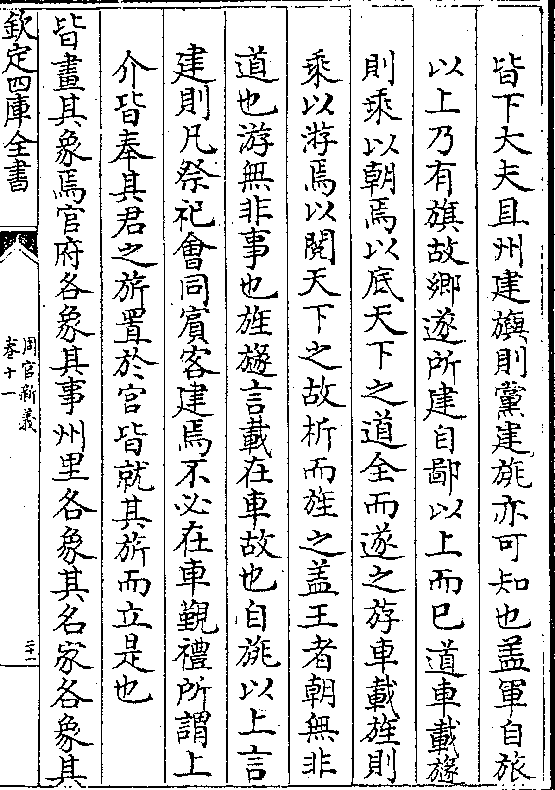 皆下大夫且州建旟則黨建旐亦可知也盖軍自旅
以上乃有旗故鄉遂所建自鄙以上而已道車載旞
則乘以朝焉以底天下之道全而遂之斿車載旌則
乘以游焉以閲天下之故析而旌之盖王者朝無非
道也游無非事也旌旞言載在車故也自旐以上言
建則凡祭祀會同賓客建焉不必在車覲禮所謂上
介皆奉其君之旂置於宫皆就其旂而立是也
皆畫其象焉官府各象其事州里各象其名家各象其
欽定四庫全書
周官新義
卷十一